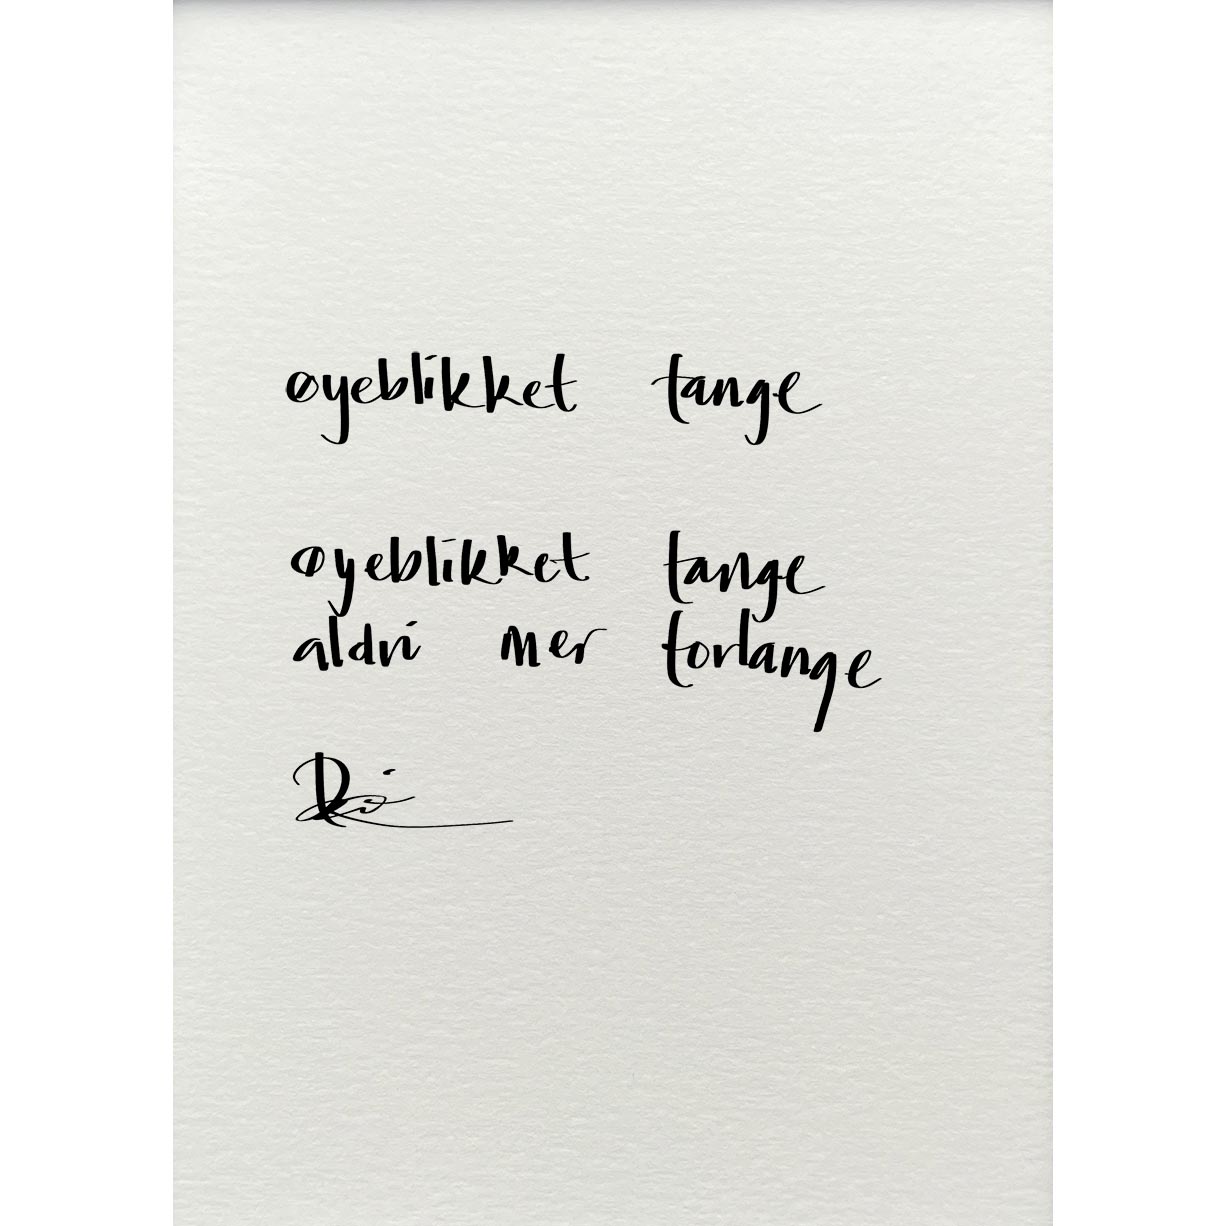 øyeblikket fange
øyeblikket fange
aldri mer forlange